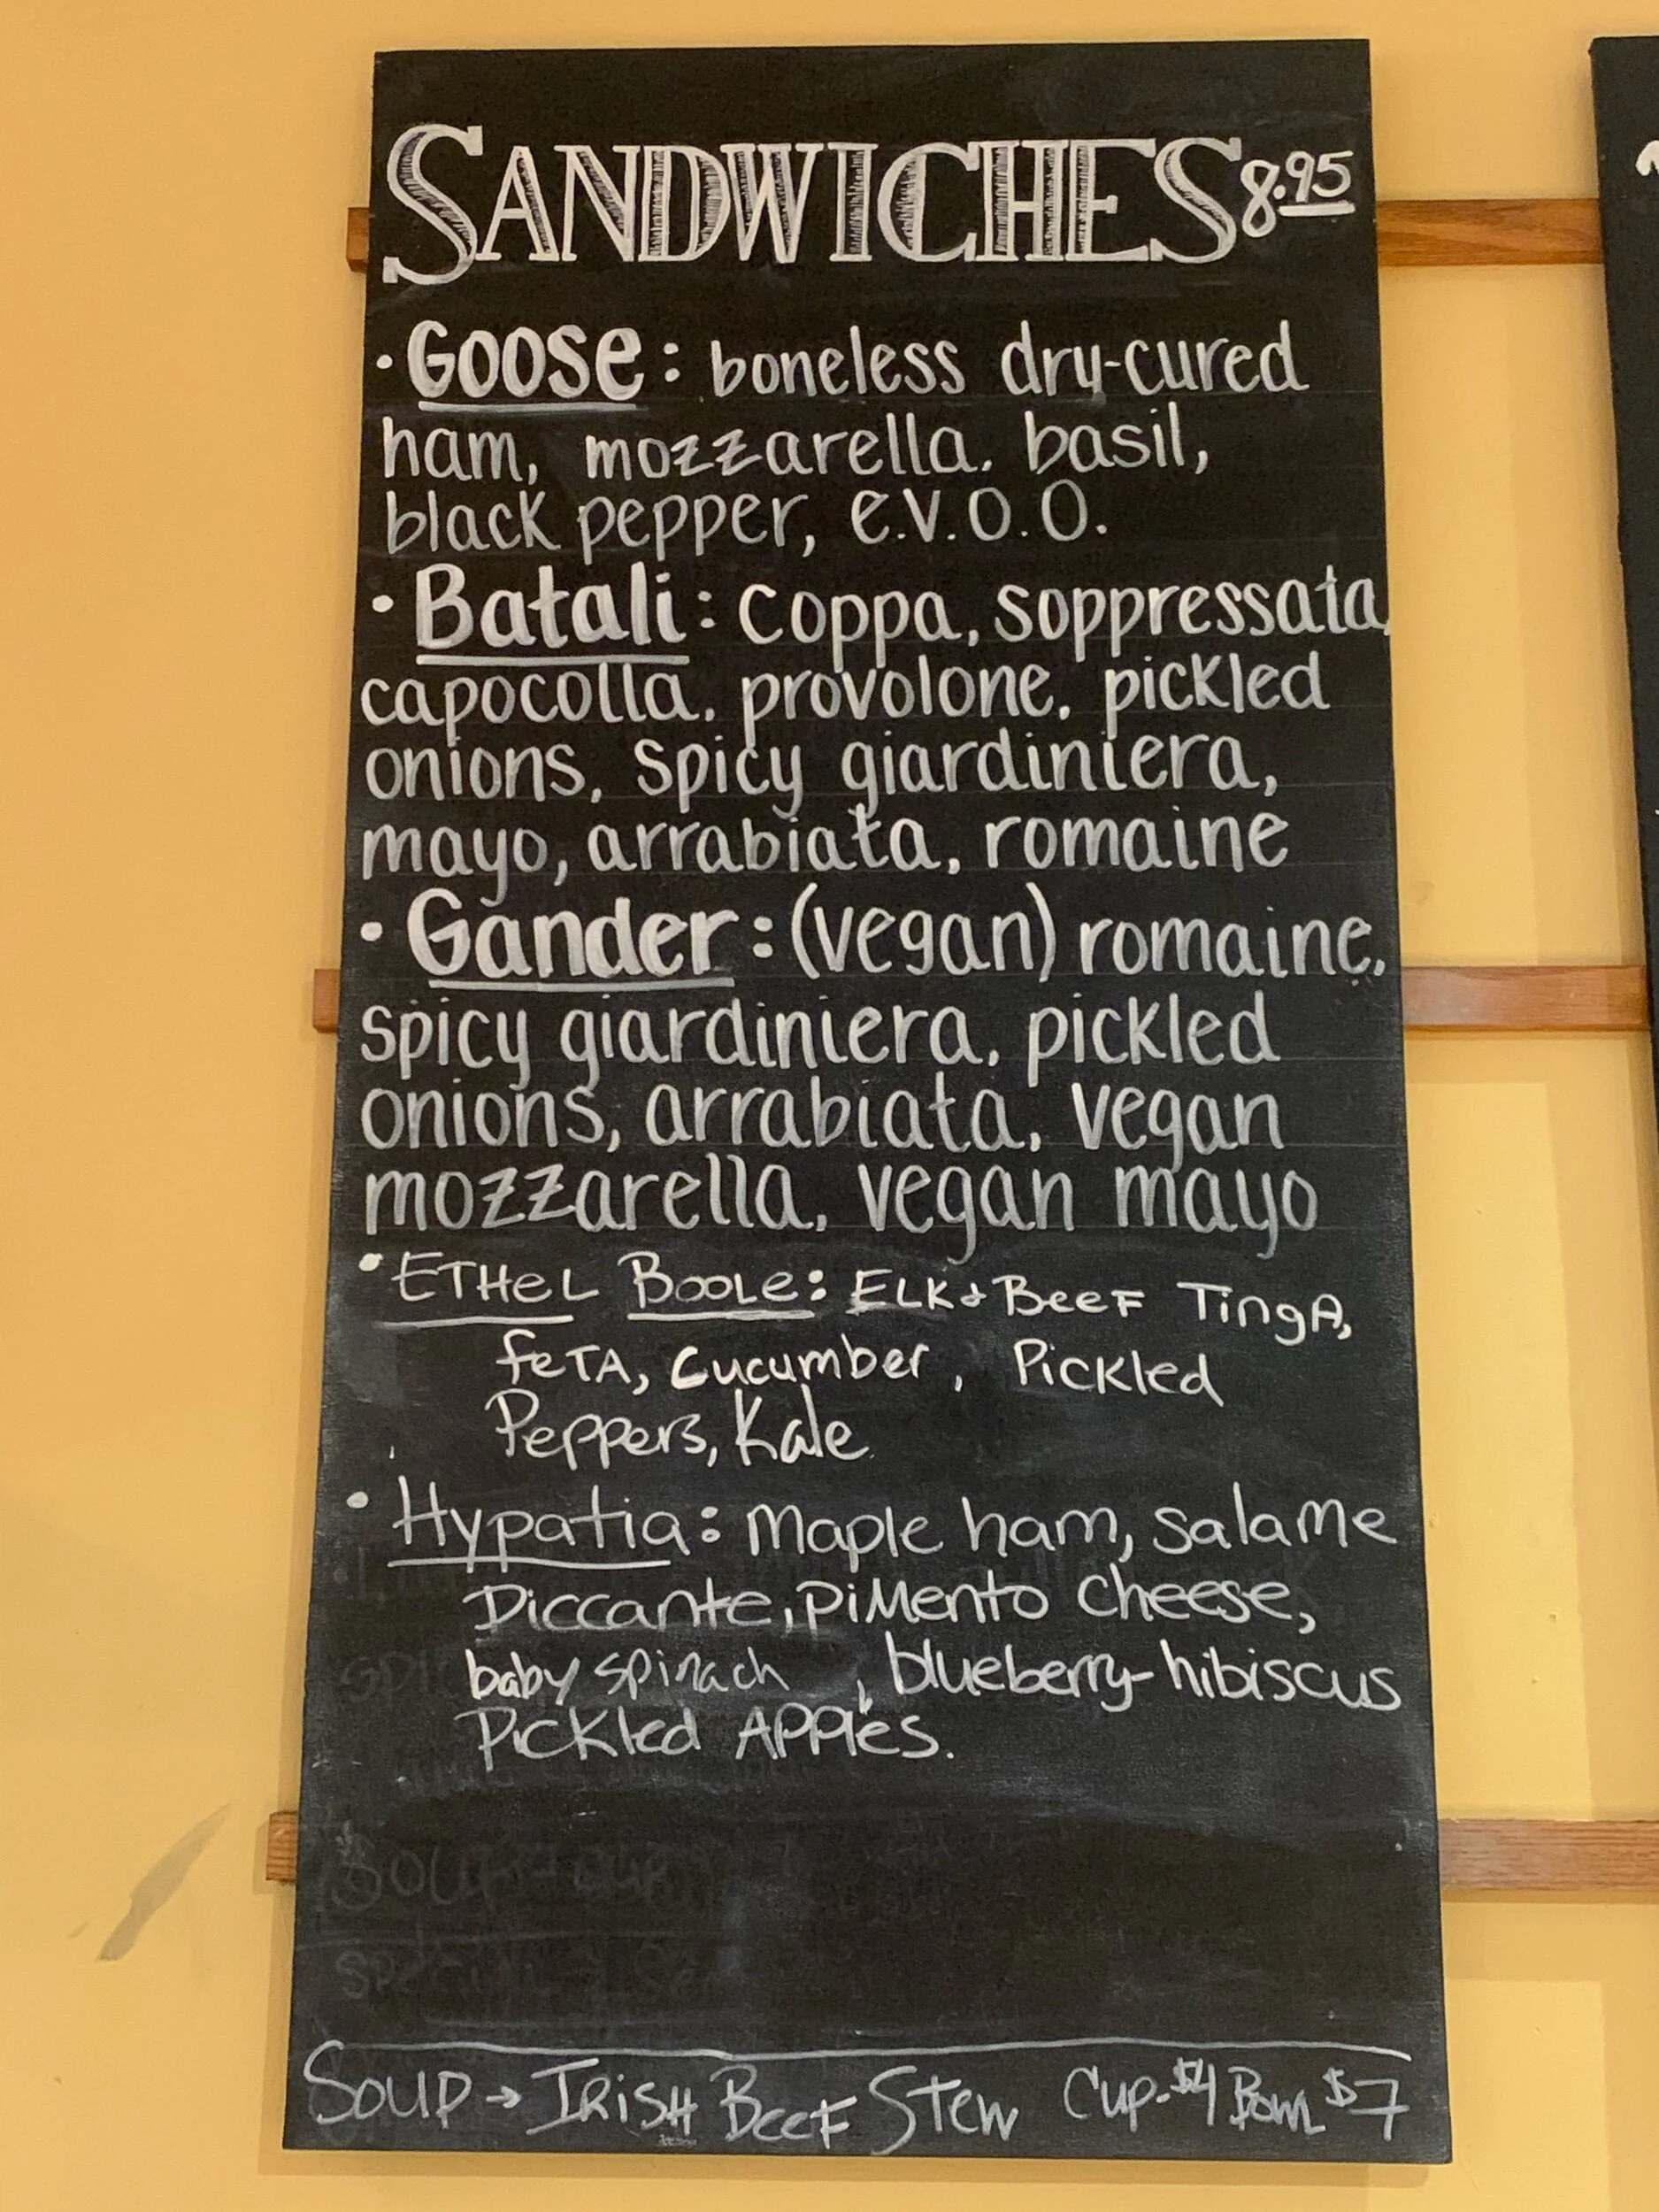 SANDWICHES 8.95
• Goose: boneless dry-cured
ham, mozzarella, basil,
black pepper, e.v.o.o.
• Batali: coppa, soppressata,
capocolla, provolone, pickled
onions, spicy giardiniera,
mayo, arrabiata, romaine
• Gander: (vegan) romaine,
spicy giardiniera, pickled
onions, arrabiata, vegan
mozzarella, vegan mayo
• ETHeL BOOLe: ELK & BeeF TingA,
feTA, Cucumber, Pickled
Peppers, Kale
• Hypatia: Maple ham, Salame
Piccante, PiMento Cheese,
baby spinach, blueberry-hibiscus
Pickled APPles.
SOUP → IRiSH BeeF Stew Cup-$4 Bowl $7